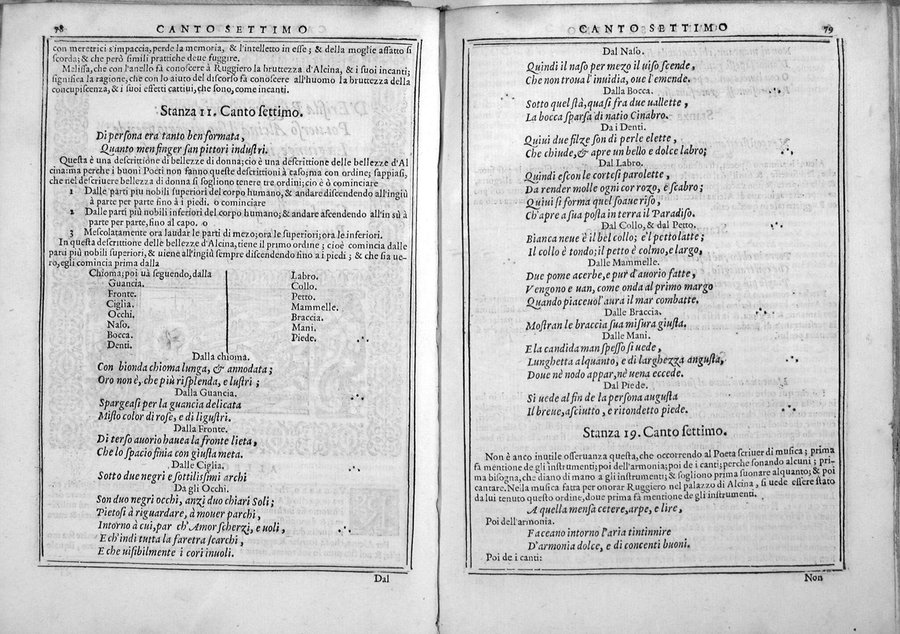 78 CANTO SETTIMO
con meretrici s'impaccia, perde la memoria, & l'intelletto in esse; & della moglie affatto si
scorda; & che però simili prattiche deue fuggire.
Melissa, che con l'anello fà conoscere à Ruggiero la bruttezza d'Alcina, & i suoi incanti;
significa la ragione, che con lo aiuto del discorso fà conoscere all'huomo la bruttezza della
concupiscenza, & i suoi effetti cattiui, che sono, come incanti.
Stanza 11. Canto settimo.
Di persona era tanto ben formata,
Quanto me' finger san pittori industri.
Questa è una descrittione di bellezze di donna; cio è una descrittione delle bellezze d'Al
cina: ma perche i buoni Poeti non fanno queste descrittioni à caso; ma con ordine; sappiasi,
che nel descriuere bellezza di donna si sogliono tenere tre ordini; cio è ò cominciare
1 Dalle parti piu nobili superiori del corpo humano, & andare discendendo all'ingiù
à parte per parte fino à i piedi. o cominciare
2 Dalle parti più nobili inferiori del corpo humano; & andare ascendendo all'in sù à
parte per parte, fino al capo. o
3 Mescolatamente ora laudar le parti di mezo; ora le superiori; ora le inferiori.
In questa descrittione delle bellezze d'Alcina, tiene il primo ordine; cioè comincia dalle
parti più nobili superiori, & uiene all'ingiù sempre discendendo fino a i piedi; & che sia ue-
ro, egli comincia prima dalla
Chioma; poi uà seguendo, dalla
Guancia.
Fronte.
Ciglia.
Occhi.
Naso.
Bocca.
Denti.
Labro.
Collo.
Petto.
Mammelle.
Braccia.
Mani.
Piede.
Dalla chioma.
Con bionda chioma lunga, & annodata;
Oro non è, che più risplenda, e lustri;
Dalla Guancia.
Spargeasi per la guancia delicata
Misto color di rose, e di ligustri.
Dalla Fronte.
Di terso auorio hauea la fronte lieta,
Che lo spacio finia con giusta meta.
Dalle Ciglia.
Sotto due negri e sottilissimi archi
Da gli Occhi.
Son duo negri occhi, anzi duo chiari Soli;
Pietosi à riguardare, à mouer parchi,
Intorno à cui, par ch'Amor scherzi, e uoli,
E ch'indi tutta la faretra scarchi,
E che uisibilmente i cori inuoli.
Dal
CANTO SETTIMO 79
Dal Naso.
Quindi il naso per mezo il uiso scende,
Che non troua l'inuidia, oue l'emende.
Dalla Bocca.
Sotto quel stà, quasi fra due uallette,
La bocca sparsa di natio Cinabro.
Da i Denti.
Quiui due filze son di perle elette,
Che chiude, & apre un bello e dolce labro;
Dal Labro.
Quindi escon le cortesi parolette,
Da render molle ogni cor rozo, e scabro;
Quiui si forma quel soaue riso,
Ch'apre a sua posta in terra il Paradiso.
Dal Collo, & dal Petto.
Bianca neue è il bel collo; e'l petto latte;
Il collo è tondo; il petto è colmo, e largo,
Dalle Mammelle.
Due pome acerbe, e pur d'auorio fatte,
Vengono e uan, come onda al primo margo
Quando piaceuol'aura il mar combatte.
Dalle Braccia.
Mostran le braccia sua misura giusta,
Dalle Mani.
E la candida man spesso si uede,
Lunghetta alquanto, e di larghezza angusta,
Doue nè nodo appar, nè uena eccede.
Dal Piede.
Si uede al fin de la persona augusta
Il breue, asciutto, e ritondetto piede.
Stanza 19. Canto settimo.
Non è anco inutile osseruanza questa, che occorrendo al Poeta scriuer di musica; prima
fà mentione de gli instrumenti; poi dell'armonia; poi de i canti; perche sonando alcuni; pri-
ma bisogna, che diano di mano a gli instrumenti; & sogliono prima suonare alquanto; & poi
cantare. Nella musica fatta per onorar Ruggiero nel palazzo di Alcina, si uede essere stato
da lui tenuto questo ordine, doue prima fà mentione de gli instrumenti.
A quella mensa cetere, arpe, e lire,
Poi dell'armonia.
Faceano intorno l'aria tintinnire
D'armonia dolce, e di concenti buoni.
Poi de i canti:
Non